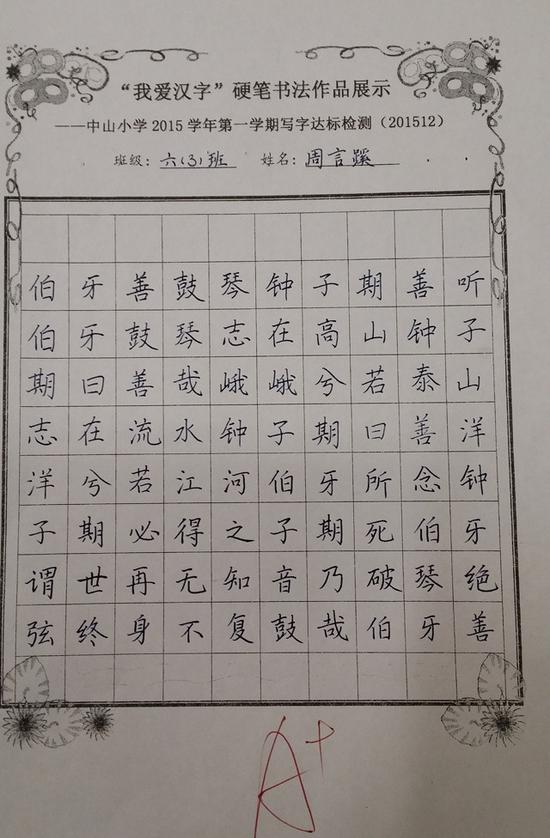 “我爱汉字”硬笔书法作品展示
——中山小学2015学年第一学期写字达标检测（201512）
班级：六（3）班 姓名：周言蹊
伯牙善鼓琴钟子期善听
伯牙鼓琴志在高山钟子
期曰善哉峨峨兮若泰山
志在流水钟子期曰善洋
洋兮若江河伯牙所念钟
子期必得之子期死伯牙
谓世再无知音乃破琴绝
弦终身不复鼓哉伯牙善
A+